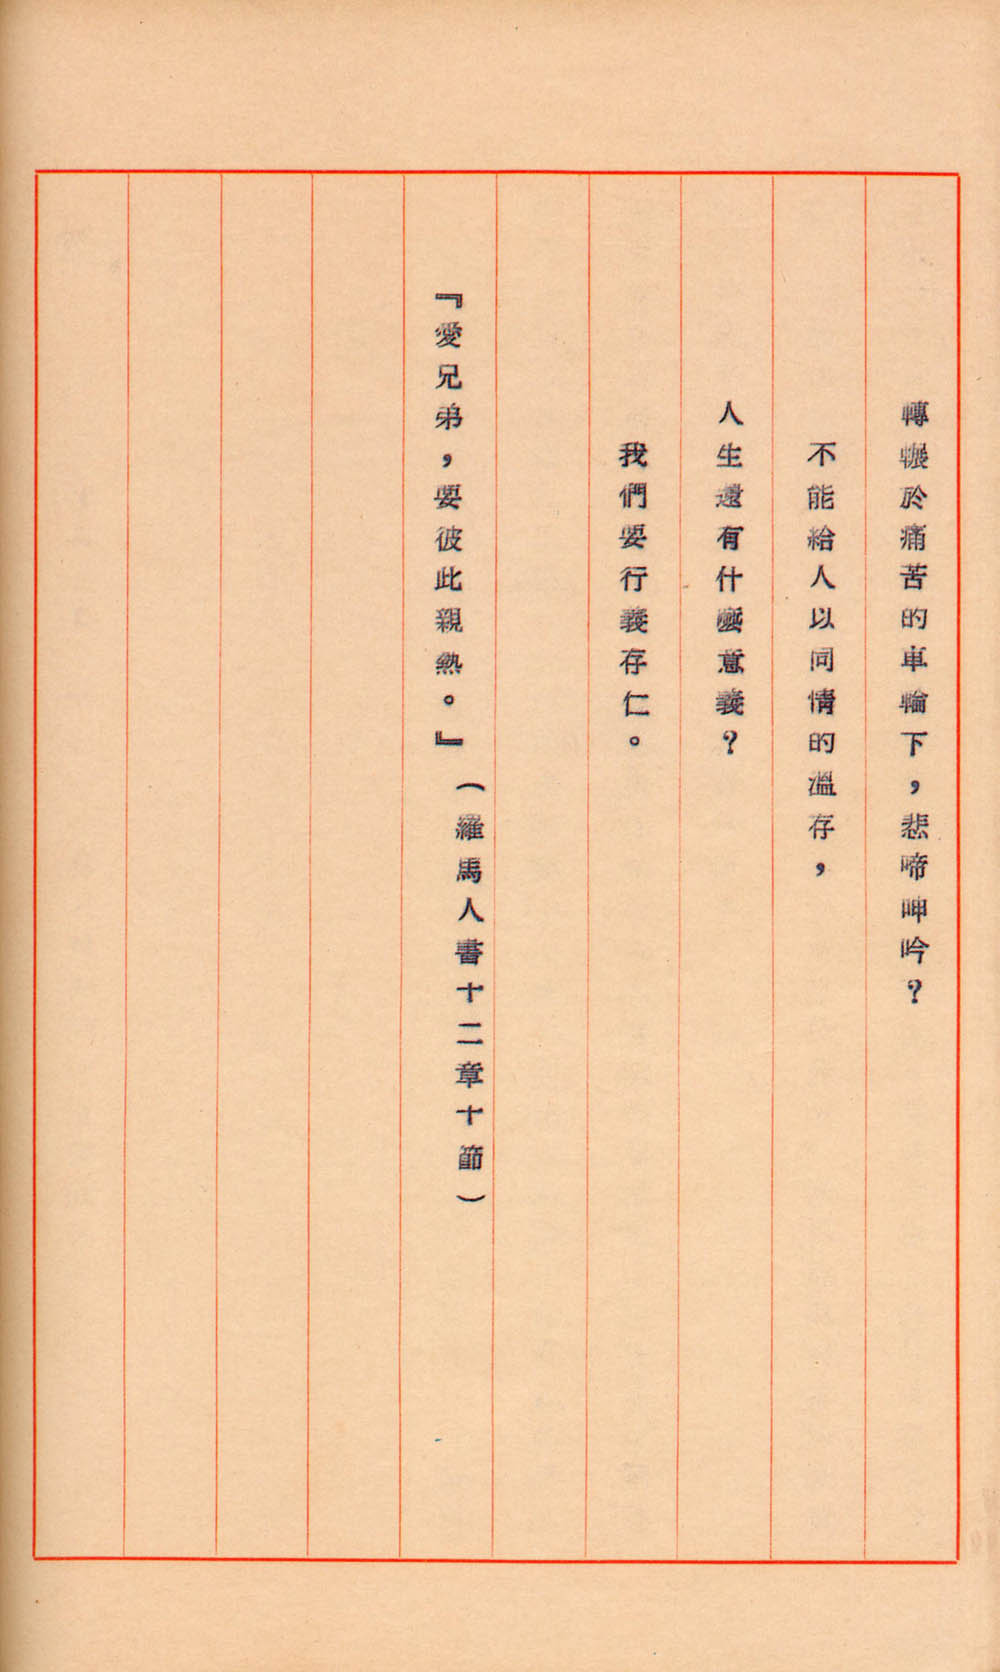 轉輾於痛苦的車輪下，悲啼呻吟？
不能給人以同情的溫存，
人生還有什麼意義？
我們要行義存仁。
『愛兄弟，要彼此親熱。』（羅馬人書十二章十節）